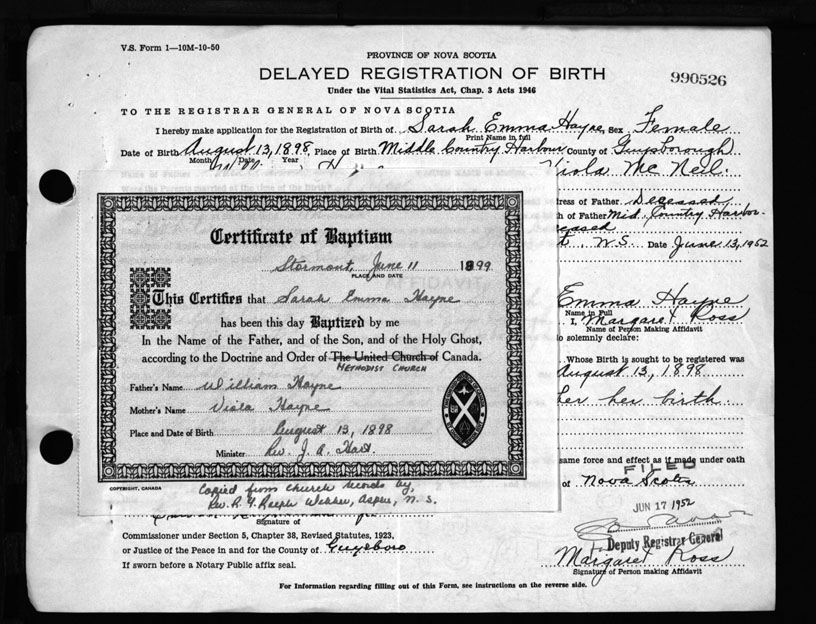 V.S. Form 1—10M-10-50
PROVINCE OF NOVA SCOTIA
DELAYED REGISTRATION OF BIRTH
990526
Under the Vital Statistics Act, Chap. 3 Acts 1946
TO THE REGISTRAR GENERAL OF NOVA SCOTIA
I hereby make application for the Registration of Birth of Sarah Emma Hayne, Sex Female
Print Name in full
Date of Birth August 13, 1898, Place of Birth Middle Country Harbour County of Guysborough
Month Date Year
Viola McNeil
ress of Father Deceased
h of Father Mid. Country Harbor
eased
N.S. Date June 13, 1952
Certificate of Baptism
Stormont, June 11 1899
PLACE AND DATE
AFFIDAVIT
This Certifies that Sarah Emma Hayne
Emma Hayne
Name in Full
has been this day Baptized by me
I, Margaret Ross
Name of Person Making Affidavit
In the Name of the Father, and of the Son, and of the Holy Ghost,
o solemnly declare:
according to the Doctrine and Order of The United Church of Canada.
METHODIST CHURCH
Whose Birth is sought to be registered was
Father's Name William Hayne
August 13, 1898
Mother's Name Viola Hayne
her birth
Place and Date of Birth August 13, 1898
Minister Rev. J. A. Hart
same force and effect as if made under oath
FILED
of Nova Scotia
COPYRIGHT, CANADA
Copied from church records by
Rev. R. Y. Ralph Webber, Aspen, N.S.
JUN 17 1952
Signature of
Commissioner under Section 5, Chapter 38, Revised Statutes, 1923,
Deputy Registrar General
or Justice of the Peace in and for the County of Guysboro
Margaret Ross
Signature of Person making Affidavit
If sworn before a Notary Public affix seal.
For Information regarding filling out of this Form, see instructions on the reverse side.